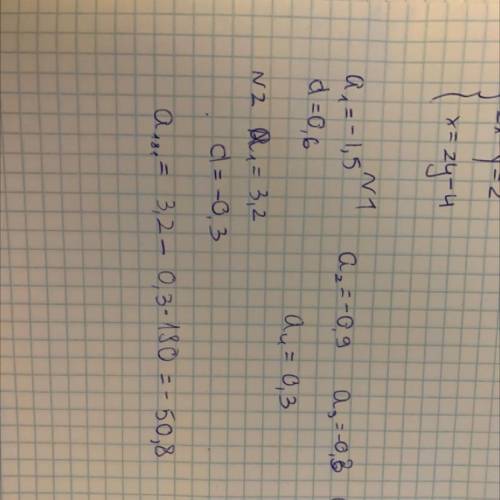 x = 2y-4
N1
a₁ = -1,5 a₂ = -0,9 a₃ = -0,3
d = 0,6 a₄ = 0,3
N2 a₁ = 3,2
d = -0,3
a₁₈₁ = 3,2 - 0,3·180 = -50,8